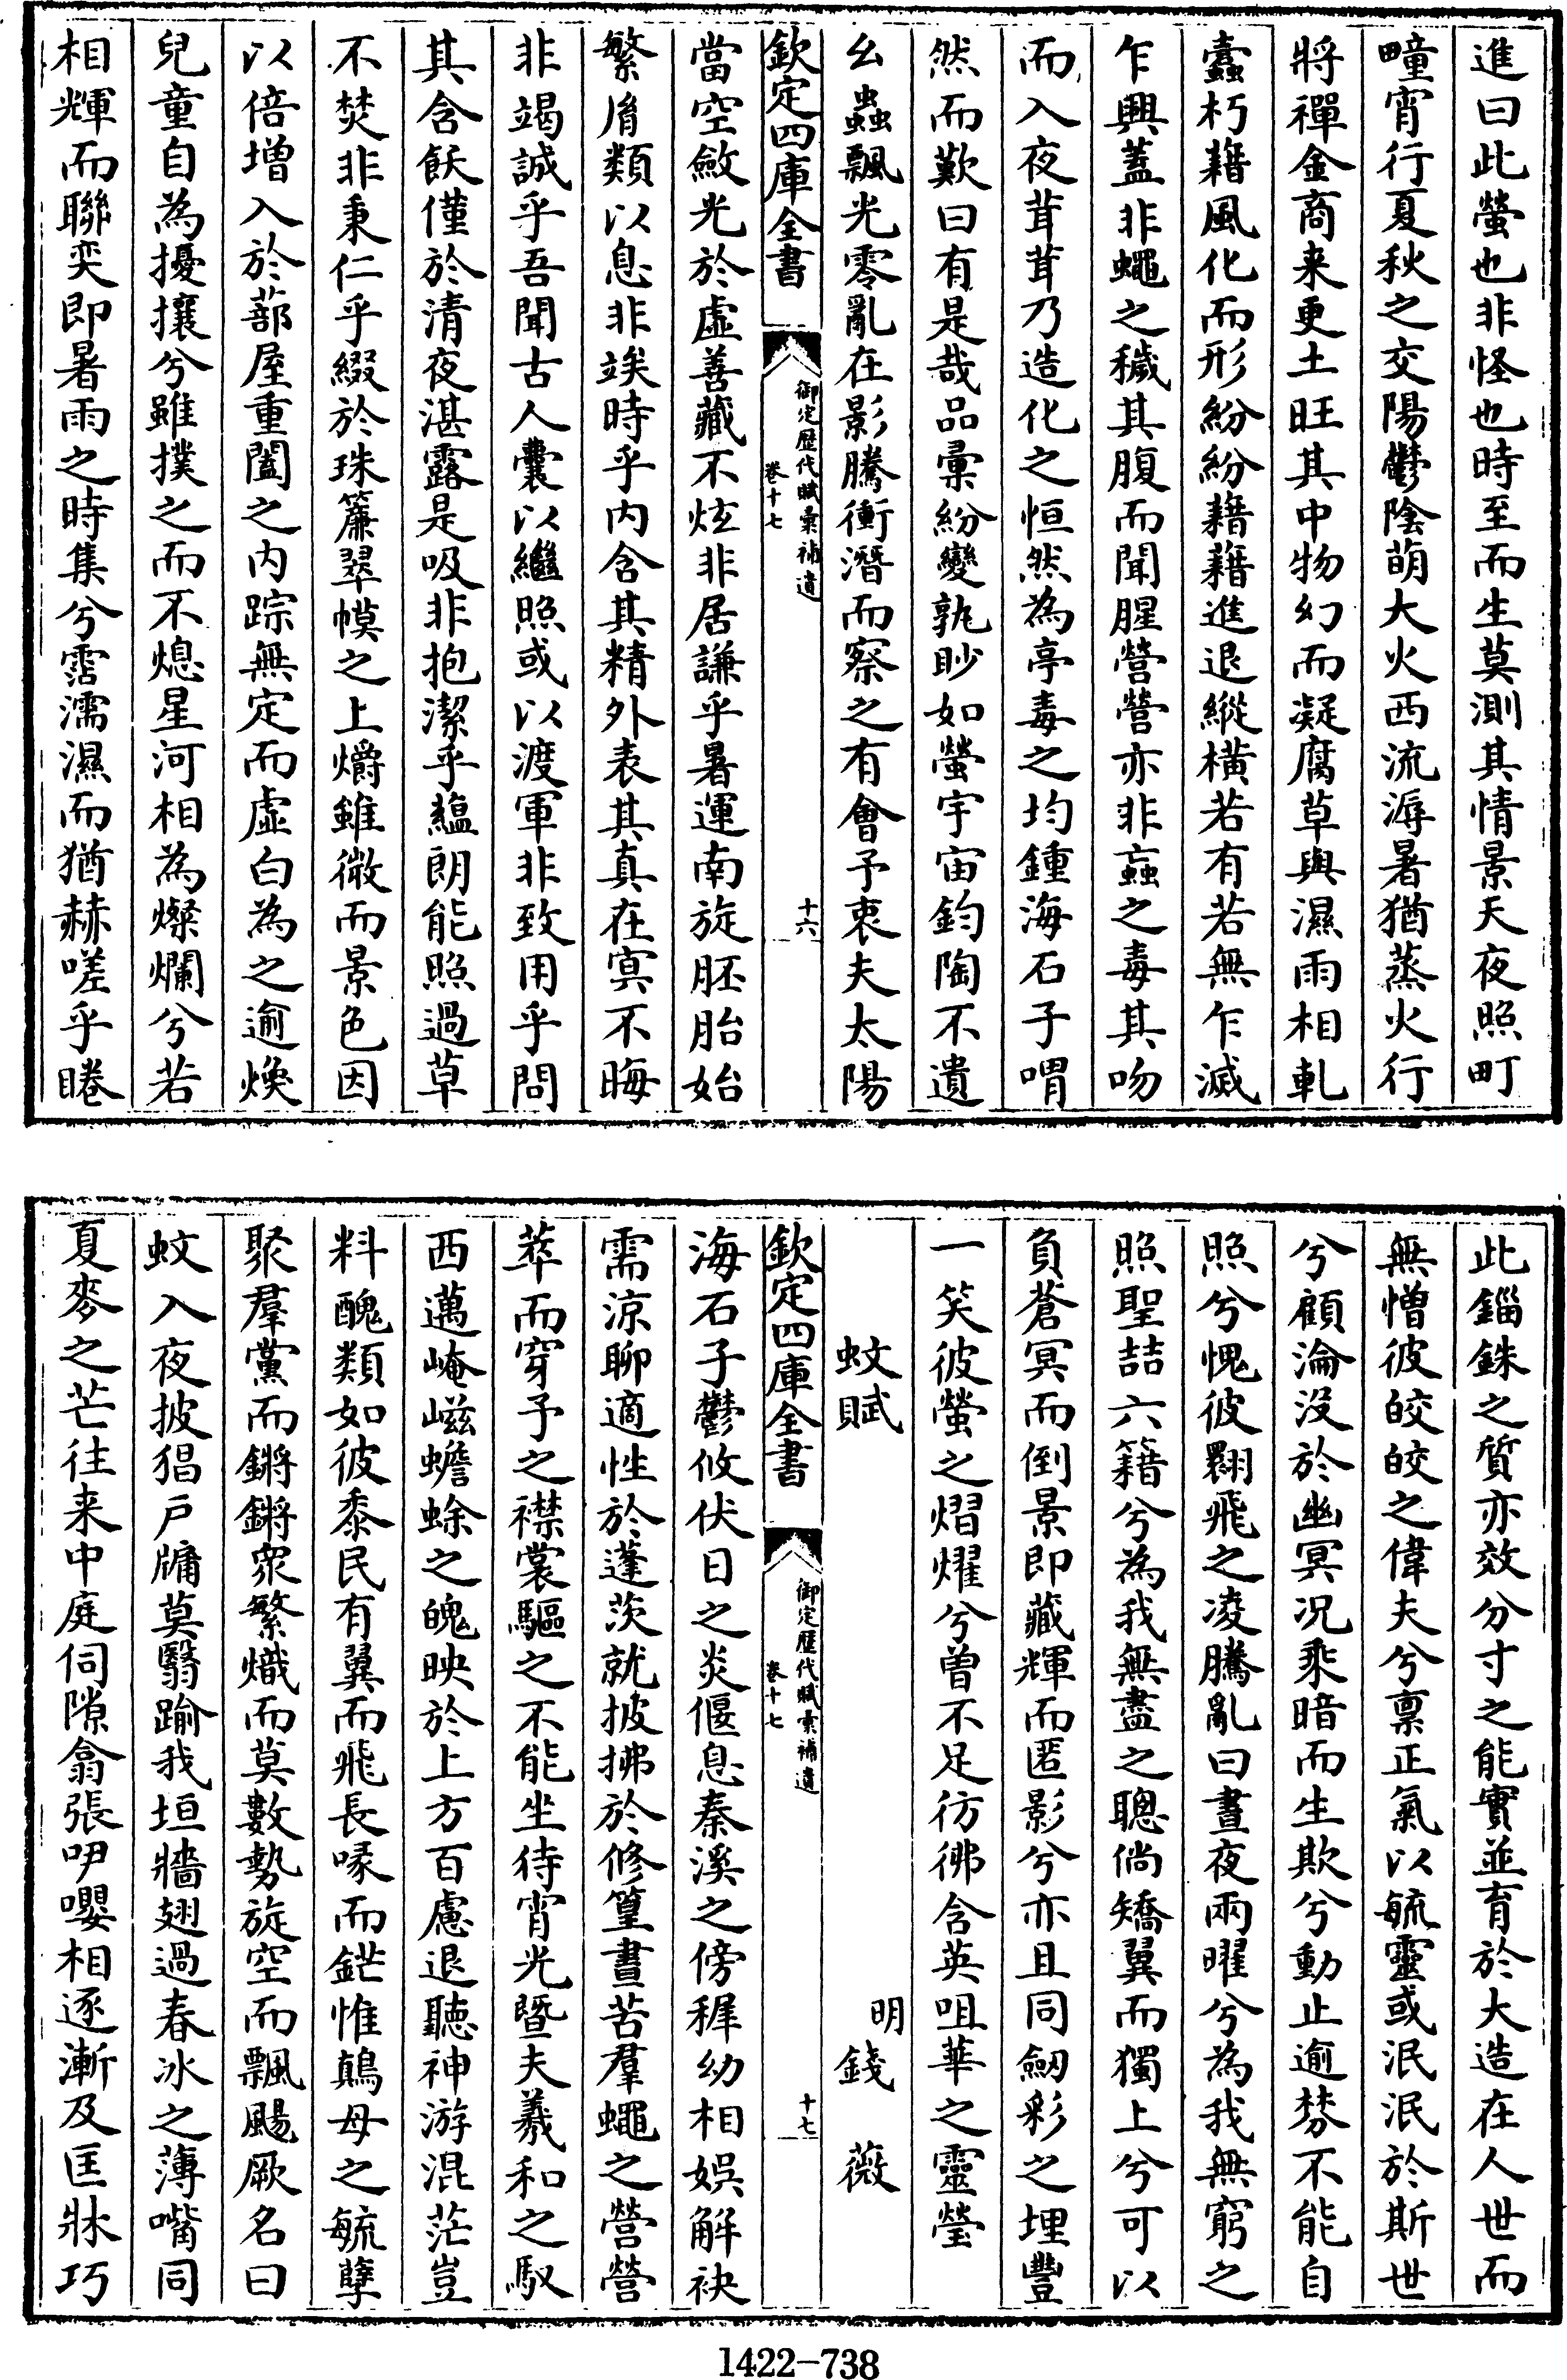 進曰此螢也非怪也時至而生莫測其情景天夜照町
疃宵行夏秋之交陽鬱陰萌大火西流溽暑猶蒸火行
將禪金商来更土旺其中物幻而凝腐草與濕雨相軋
蠹朽藉風化而形紛紛藉藉進退縱橫若有若無乍滅
乍興蓋非蠅之穢其腹而聞腥營營亦非蝱之毒其吻
而入夜茸茸乃造化之恒然為亭毒之均鍾海石子喟
然而歎曰有是哉品彙紛變孰眇如螢宇宙鈞陶不遺
幺蟲飄光零亂在影騰衝潛而察之有會予衷夫太陽
欽定四庫全書
御定歷代賦彙補遺
卷十七
十六
當空斂光於虛善藏不炫非居謙乎暑運南旋胚胎始
繁脩類以息非竢時乎内含其精外表其真在寘不晦
非竭誠乎吾聞古人囊以繼照或以渡軍非致用乎問
其含飫僅於清夜湛露是吸非抱潔乎蘊朗能照過草
不焚非秉仁乎綴於珠簾翠幙之上爝雖微而景色因
以倍增入於蔀屋重闔之内踪無定而虛白為之逾煥
兒童自為擾攘兮雖撲之而不熄星河相為燦爛兮若
相輝而聯奕即暑雨之時集兮霑濡濕而猶赫嗟乎睠
此錙銖之質亦效分寸之能實並育於大造在人世而
無憎彼皎皎之偉夫兮禀正氣以毓靈或泯泯於斯世
兮顧淪沒於幽冥况乘暗而生欺兮動止逾棼不能自
照兮愧彼翾飛之凌騰亂曰晝夜兩曜兮為我無窮之
照聖喆六籍兮為我無盡之聰倘矯翼而獨上兮可以
負蒼冥而倒景即藏輝而匿影兮亦且同劒彩之埋豐
一笑彼螢之熠燿兮曽不足彷彿含英咀華之靈瑩
蚊賦
明 錢 薇
欽定四庫全書
御定歷代賦彙補遺
卷十七
十七
海石子鬱攸伏日之炎偃息秦溪之傍穉幼相娛解袂
需凉聊適性於蓬茨就披拂於修篁晝苦羣蠅之營營
萃而穿予之襟裳驅之不能坐待宵光曁夫羲和之馭
西邁崦嵫蟾蜍之魄映於上方百慮退聽神游混茫豈
料醜類如彼黍民有翼而飛長喙而鋩惟鷏母之毓孽
聚羣黨而鏘鏘衆繁熾而莫數勢旋空而飄颺厥名曰
蚊入夜披猖戸牖莫翳踰我垣牆翅過春冰之薄嘴同
夏麥之芒往来中庭伺隙翕張吚嚶相逐漸及匡牀巧
1422-738